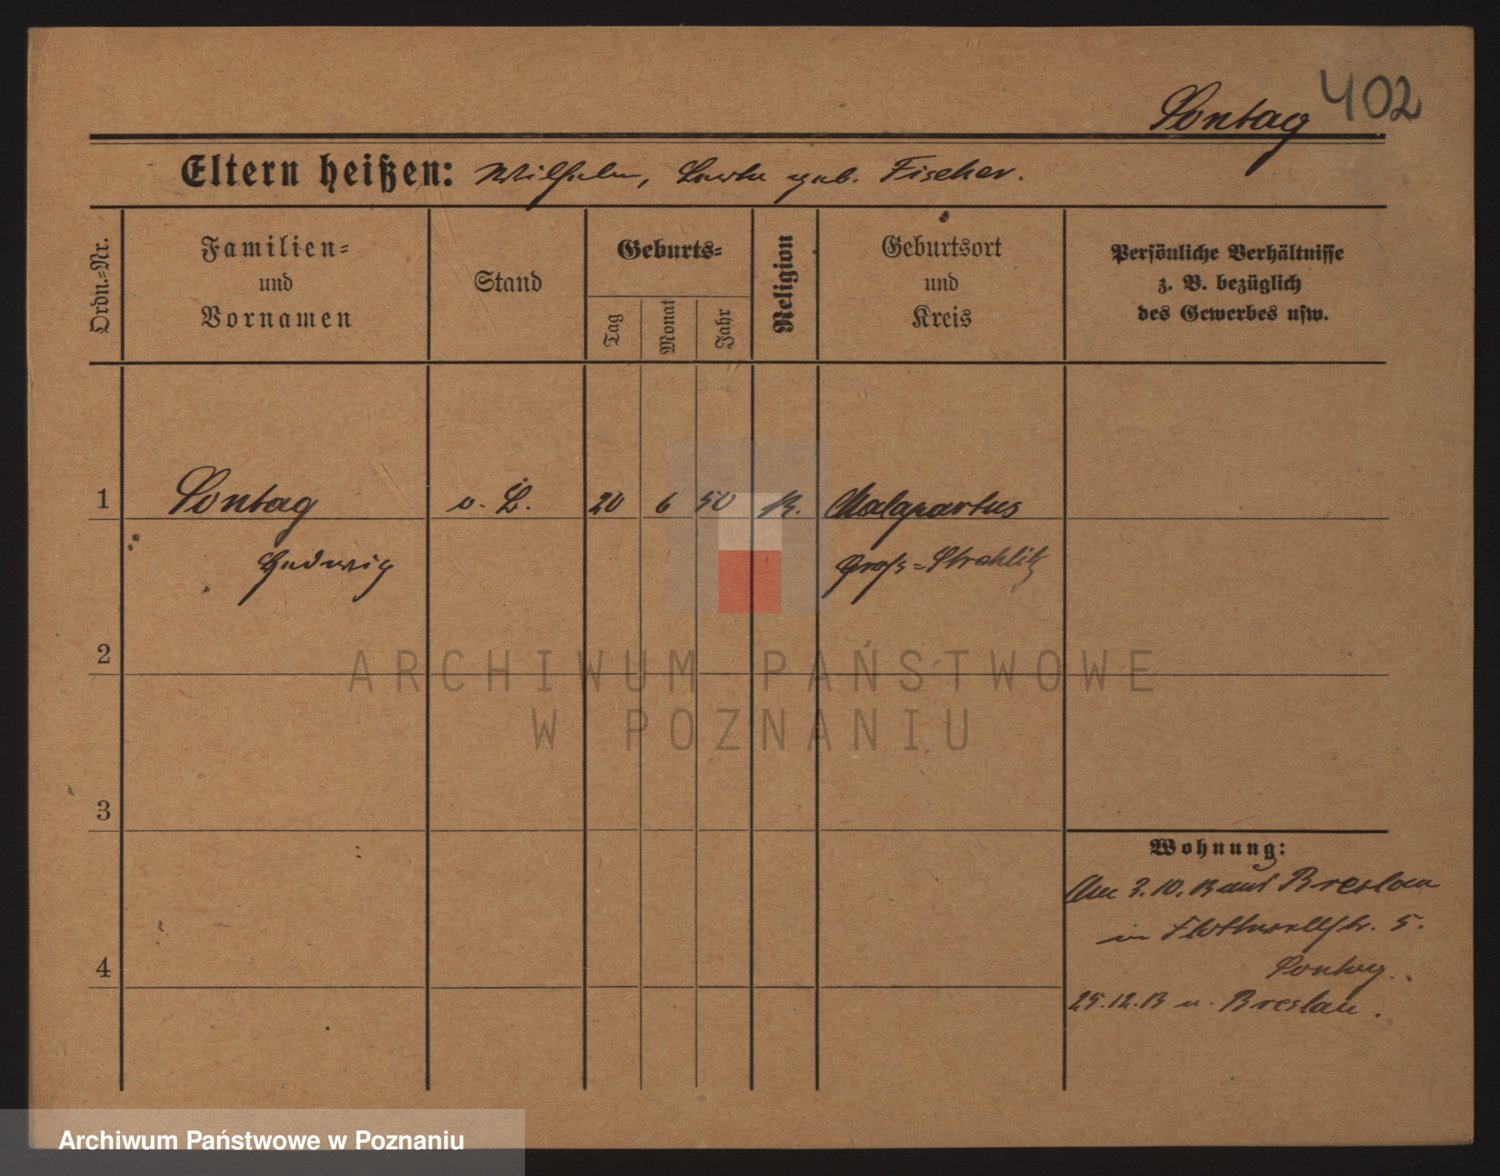 402
Sontag
Eltern heißen: Wilhelm, geb. Fischer.
Ordn.-Nr.
Familien-
und
Vornamen
Stand
Geburts-
Tag
Monat
Jahr
Religion
Geburtsort
und
Kreis
Persönliche Verhältnisse
z. B. bezüglich
des Gewerbes usw.
1 Sontag 20 6 50 K. Malapartus
Hedwig Groß-Strehlitz
2
3
4
Wohnung:
3.10.13 aus Breslau
in Flottwellstr. 5.
Sontag.
25.12.13 n. Breslau.
ARCHIWUM PAŃSTWOWE
W POZNANIU
Archiwum Państwowe w Poznaniu